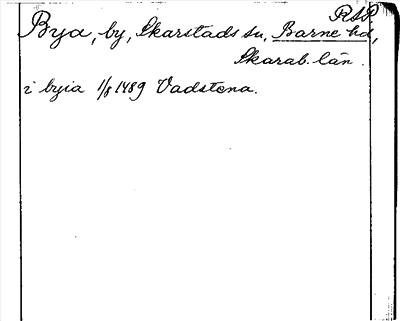 RSP
Bya, by, Skarstads sn, Barne hd,
Skarab. län.
i byia 1/8 1489 Vadstena.